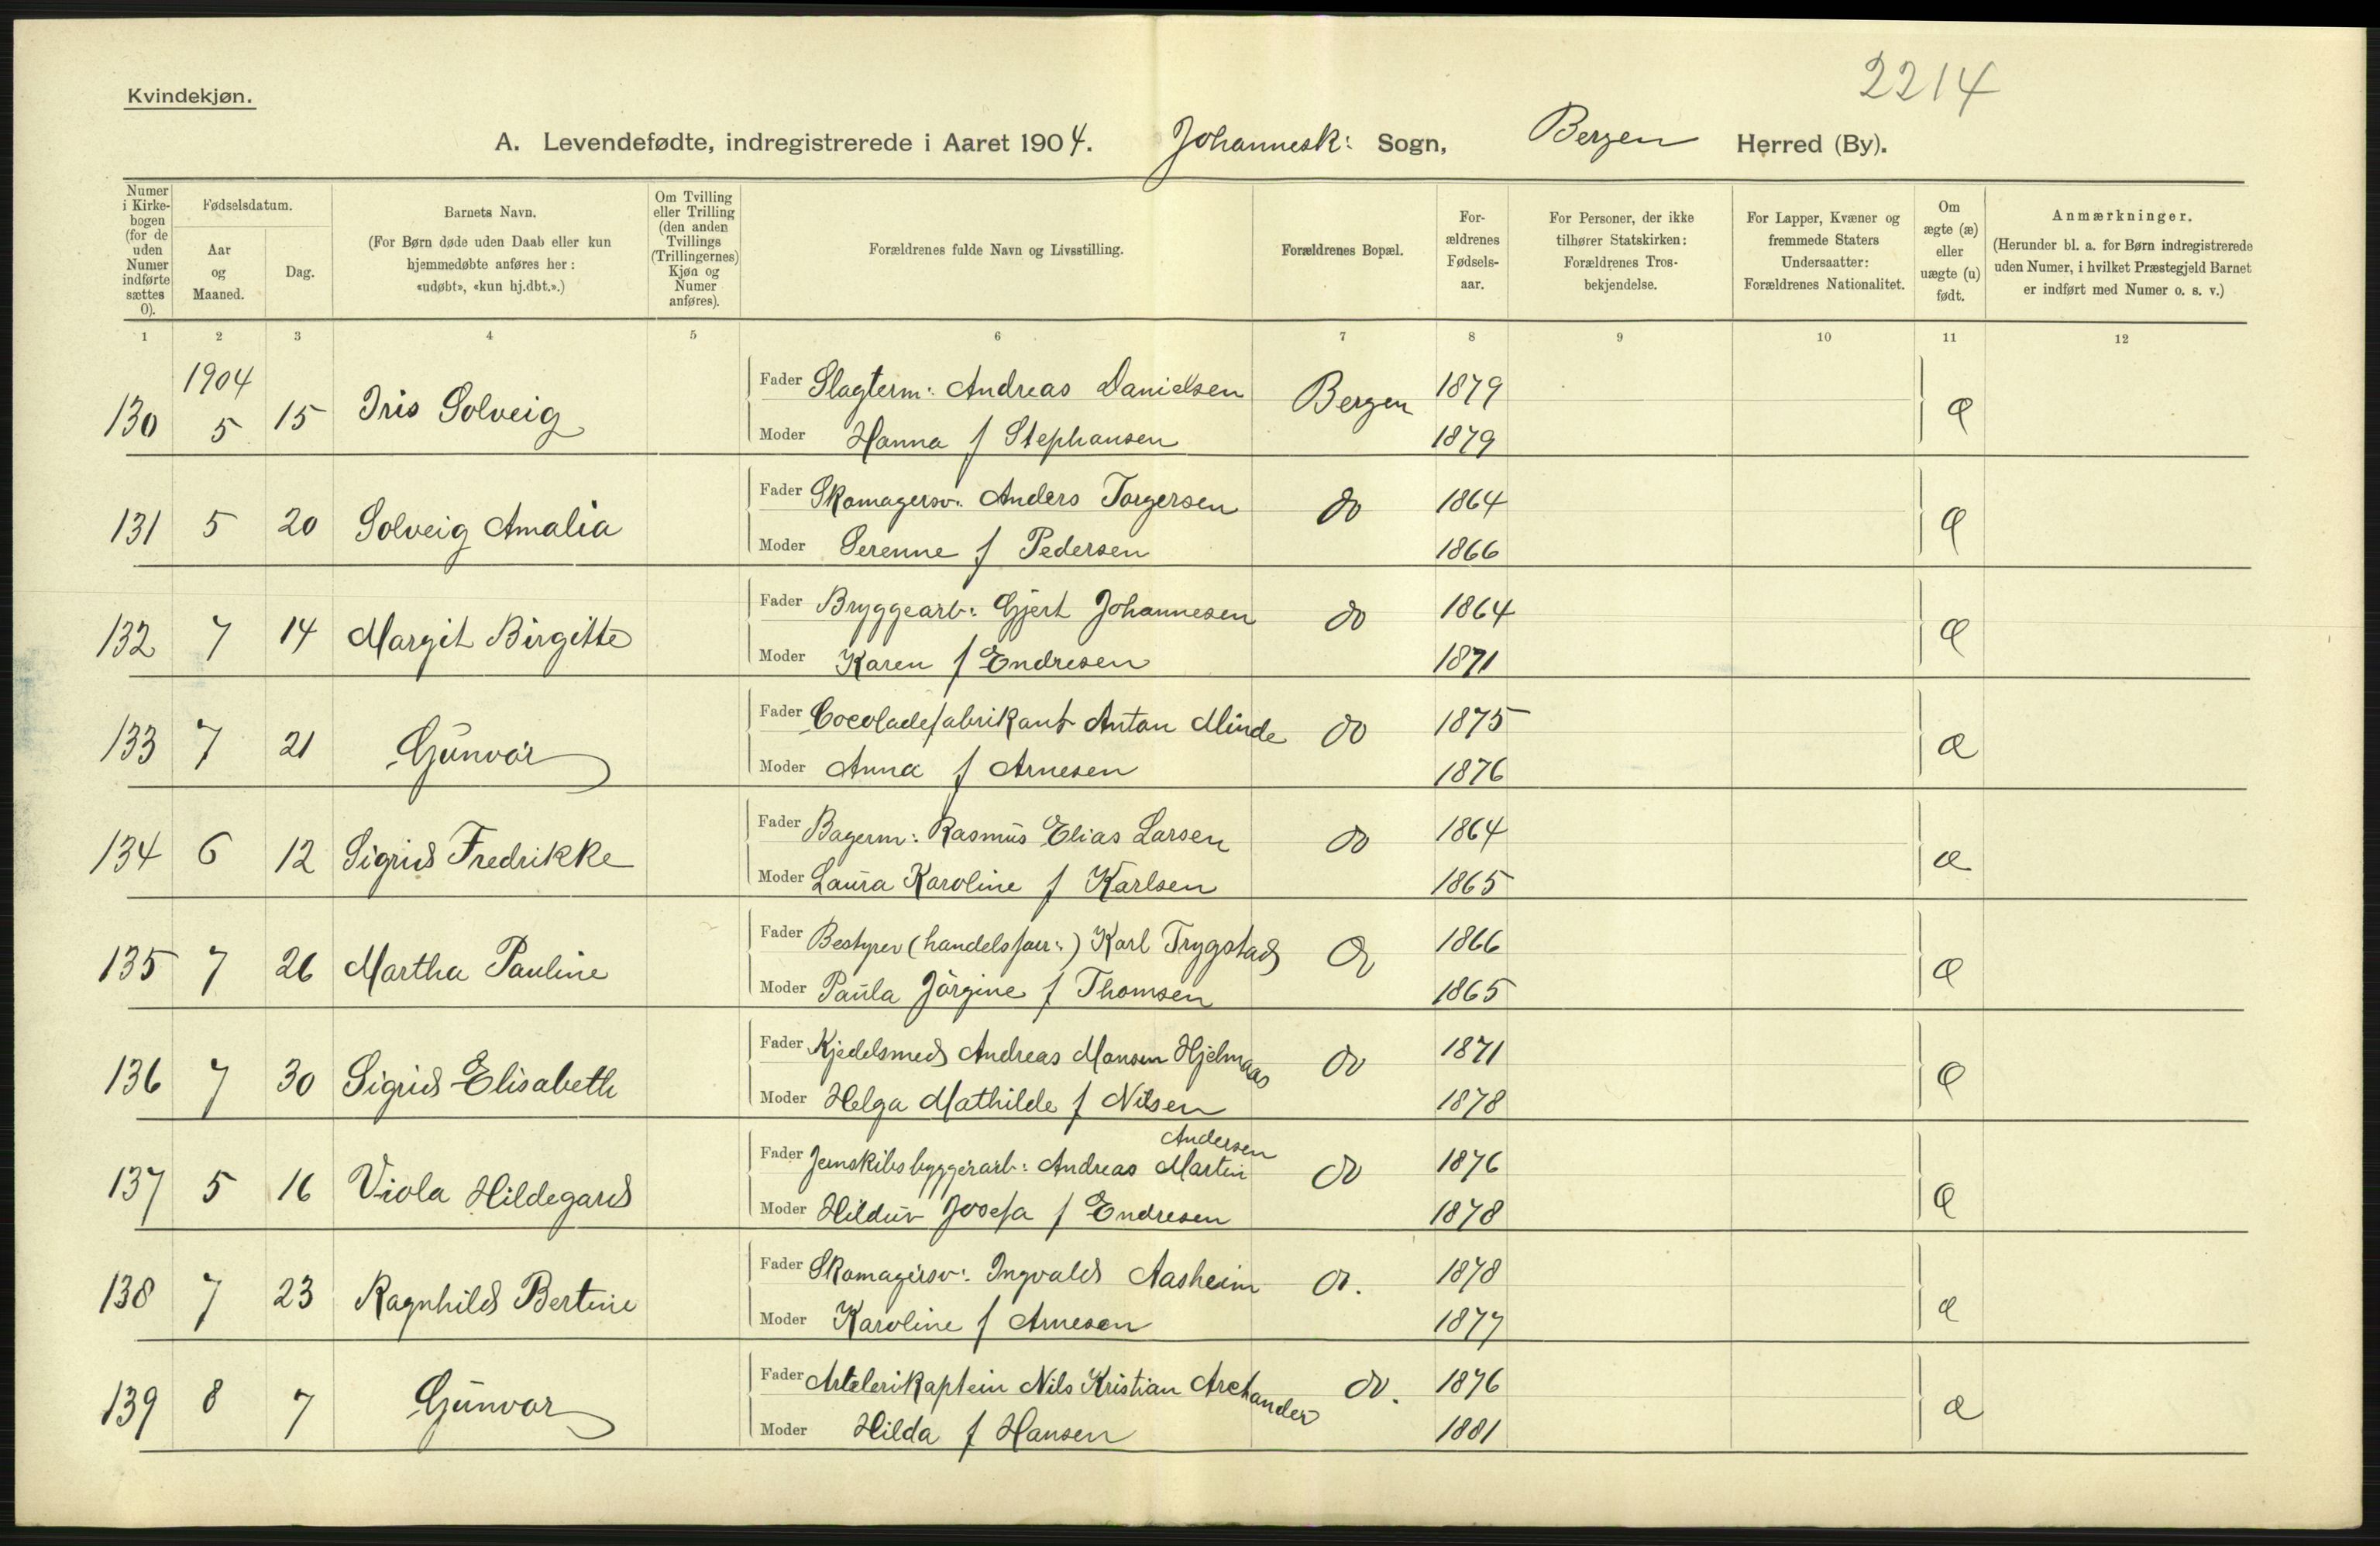 2214
Kvindekjøn.
A. Levendefødte, indregistrerede i Aaret 1904. Johannesk: Sogn, Bergen Herred (By).
Numer i Kirke-bogen (for de uden Numer indførte sættes 0).
Fødselsdatum.
Aar og Maaned.
Dag.
Barnets Navn.
(For Børn døde uden Daab eller kun hjemmedøbte anføres her: «udøbt», «kun hj.dbt.».)
Om Tvilling eller Trilling (den anden Tvillings (Trillingernes) Kjøn og Numer anføres).
Forældrenes fulde Navn og Livsstilling.
Forældrenes Bopæl.
For-ældrenes Fødsels-aar.
For Personer, der ikke tilhører Statskirken: Forældrenes Tros-bekjendelse.
For Lapper, Kvæner og fremmede Staters Undersaatter: Forældrenes Nationalitet.
Om ægte (æ) eller uægte (u) født.
Anmærkninger.
(Herunder bl. a. for Børn indregistrerede uden Numer, i hvilket Præstegjeld Barnet er indført med Numer o. s. v.)
1 2 3 4 5 6 7 8 9 10 11 12
1904
130 5 15 Iris Solveig Fader Slagterm: Andreas Danielsen Bergen 1879 æ
Moder Hanna f Stephansen 1879
131 5 20 Solveig Amalia Fader Skomagersv: Anders Torgersen do 1864 æ
Moder Serenne f Pedersen 1866
132 7 14 Margit Birgitte Fader Bryggearb: Gjert Johannesen do 1864 æ
Moder Karen f Endresen 1871
133 7 21 Gunvor Fader Cocoladefabrikant Anton Minde do 1875 æ
Moder Anna f Arnesen 1876
134 6 12 Sigrid Fredrikke Fader Bagerm: Rasmus Elias Larsen do 1864 æ
Moder Laura Karoline f Karlsen 1865
135 7 26 Martha Pauline Fader Bestyrer (handelsforr:) Karl Trygstad do 1866 æ
Moder Paula Jörgine f Thomsen 1865
136 7 30 Sigrid Elisabeth Fader Kjedelsmed Andreas Monsen Hjelmaas do 1871 æ
Moder Helga Mathilde f Nilsen 1878
Andersen
137 5 16 Viola Hildegard Fader Jernskibsbyggerarb: Andreas Martin do 1876 æ
Moder Hildur Josefa f Endresen 1878
138 7 23 Ragnhild Bertine Fader Skomagersv: Ingvald Aasheim do. 1878 æ
Moder Karoline f Arnesen 1877
139 8 7 Gunvor Fader Artelerikaptein Nils Kristian Archander do. 1876 æ
Moder Hilda f Hansen 1881